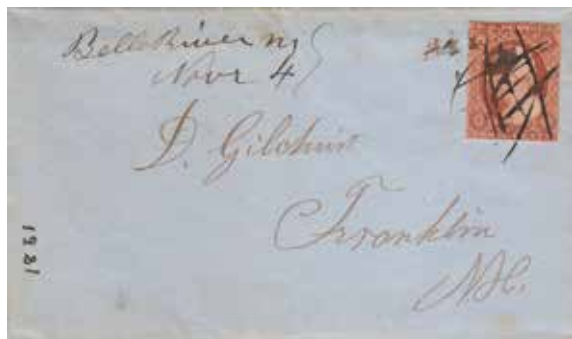 Belle River
Novr 4
D. Gilchrist
Franklin
1881